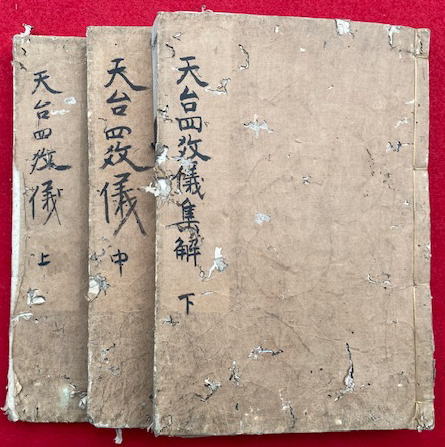 天台四教儀 上
天台四教儀 中
天台四教儀集解 下